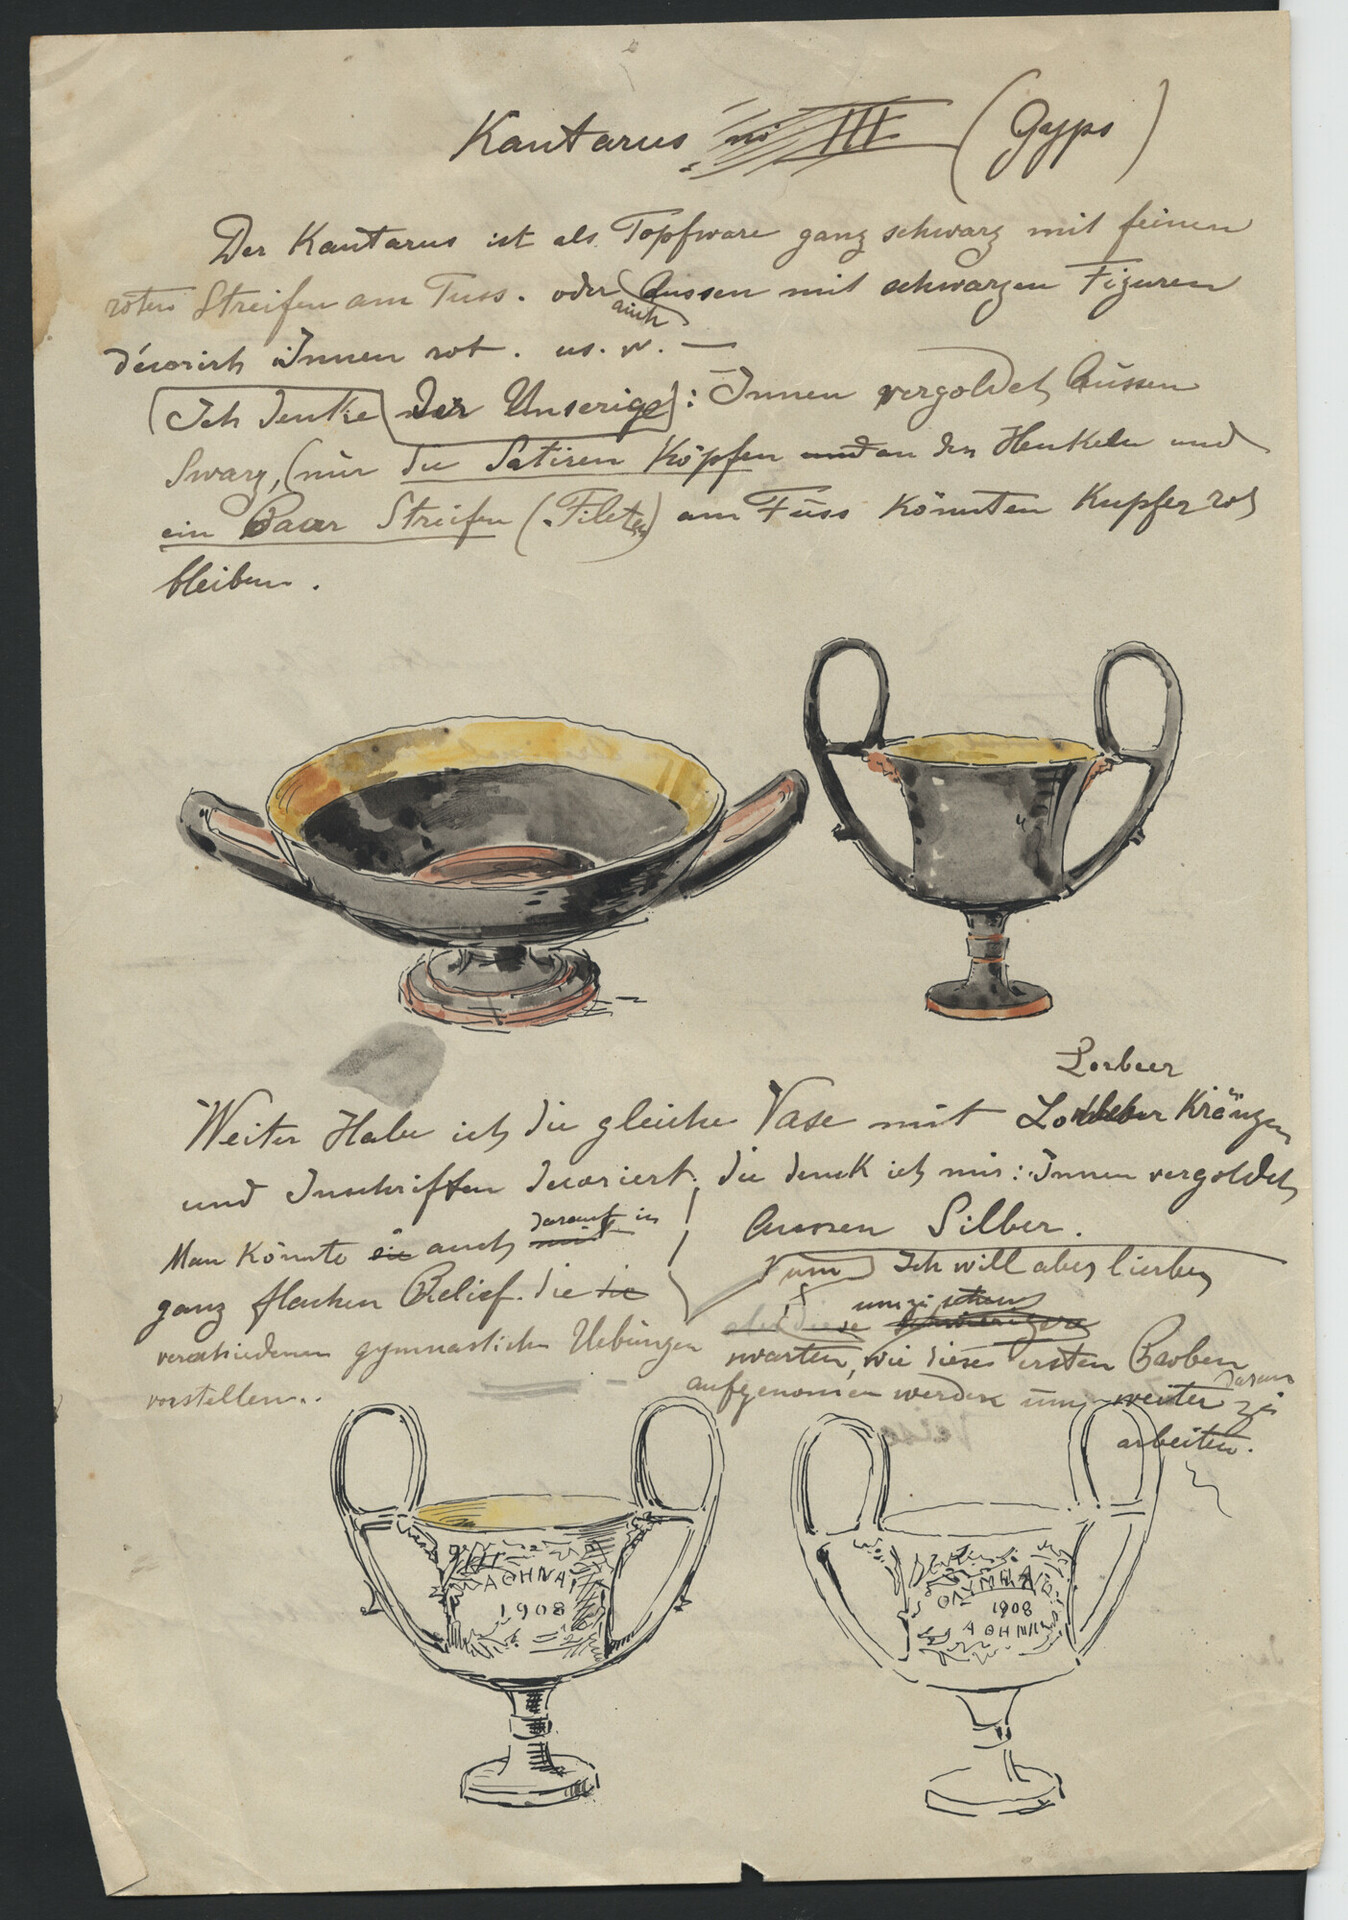 Kantarus no III (Gyps)
Der Kantarus ist als Topfware ganz schwarz mit feinen
roten Streifen am Fuss. oder Aussen mit schwarzen Figuren
auch
decorirt Innen rot. us. w. —
(Ich denke der Unserige): Innen vergoldet Aussen
Swarz, (nur die Satiren Köpfen und an den Henkeln und
ein Paar Streifen (Fileten) am Fuss könnten Kupfer rot
bleiben.
Lorbeer
Weiter Habe ich die gleiche Vase mit Kränzen
und Inschriften decoriert, die denk ich mir: Innen vergoldet
Aussen Silber.
Man könnte sie auch mit
darauf in
ganz flachen Relief. die die
verschiedenen gymnastischen Uebungen
vorstellen..
um Ich will aber lieber
umzi
aber diese
warten, wie diese ersten Proben
aufgenomen werden um weiter zu
daran
arbeiten.
ΑΘΗΝΑΙ
1908
1908